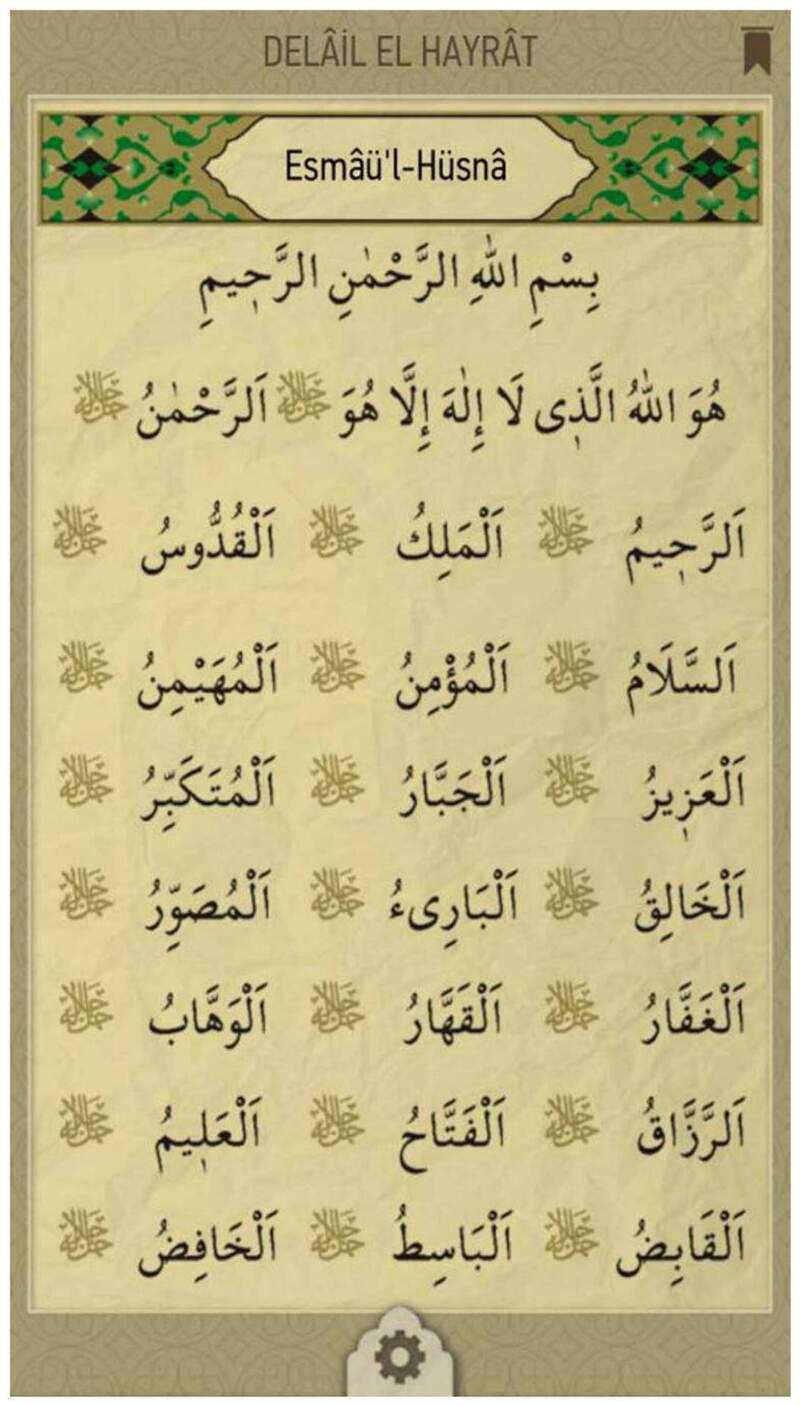 DELÂİL EL HAYRÂT
Esmâü'l-Hüsnâ
بِسْمِ اللّٰهِ الرَّحْمٰنِ الرَّح۪يمِ
هُوَ اللّٰهُ الَّذ۪ى لَا إِلٰهَ إِلَّا هُوَ جَلَّ جَلَالُهُ اَلرَّحْمٰنُ جَلَّ جَلَالُهُ
اَلرَّح۪يمُ جَلَّ جَلَالُهُ اَلْمَلِكُ جَلَّ جَلَالُهُ اَلْقُدُّوسُ جَلَّ جَلَالُهُ
اَلسَّلَامُ جَلَّ جَلَالُهُ اَلْمُؤْمِنُ جَلَّ جَلَالُهُ اَلْمُهَيْمِنُ جَلَّ جَلَالُهُ
اَلْعَز۪يزُ جَلَّ جَلَالُهُ اَلْجَبَّارُ جَلَّ جَلَالُهُ اَلْمُتَكَبِّرُ جَلَّ جَلَالُهُ
اَلْخَالِقُ جَلَّ جَلَالُهُ اَلْبَارِىءُ جَلَّ جَلَالُهُ اَلْمُصَوِّرُ جَلَّ جَلَالُهُ
اَلْغَفَّارُ جَلَّ جَلَالُهُ اَلْقَهَّارُ جَلَّ جَلَالُهُ اَلْوَهَّابُ جَلَّ جَلَالُهُ
اَلرَّزَّاقُ جَلَّ جَلَالُهُ اَلْفَتَّاحُ جَلَّ جَلَالُهُ اَلْعَل۪يمُ جَلَّ جَلَالُهُ
اَلْقَابِضُ جَلَّ جَلَالُهُ اَلْبَاسِطُ جَلَّ جَلَالُهُ اَلْخَافِضُ جَلَّ جَلَالُهُ